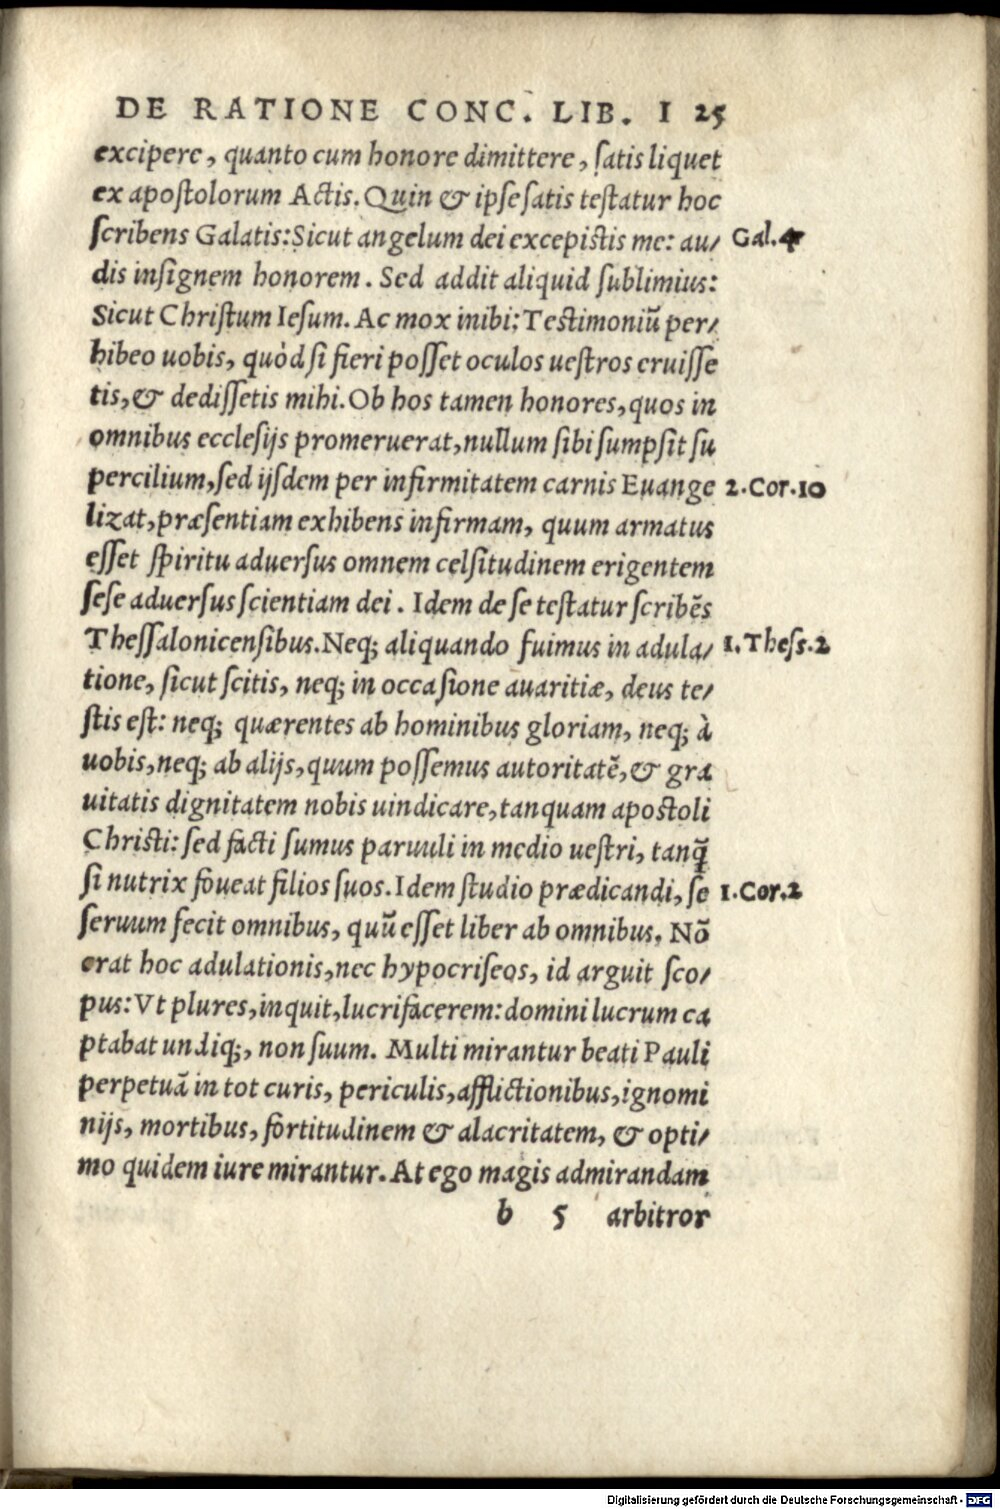 DE RATIONE CONC. LIB. I 25
excipere, quanto cum honore dimittere, ſatis liquet
ex apoſtolorum Actis. Quin & ipſe ſatis teſtatur hoc
ſcribens Galatis: Sicut angelum dei excepiſtis me: au/ Gal.4
dis inſignem honorem. Sed addit aliquid ſublimius:
Sicut Chriſtum Ieſum. Ac mox inibi: Teſtimoniũ per/
hibeo uobis, quòd ſi fieri poſſet oculos ueſtros eruiſſe
tis, & dediſſetis mihi. Ob hos tamen honores, quos in
omnibus eccleſijs promeruerat, nullum ſibi ſumpſit ſu
percilium, ſed ijſdem per infirmitatem carnis Euange 2.Cor.10
lizat, præſentiam exhibens infirmam, quum armatus
eſſet ſpiritu aduerſus omnem celſitudinem erigentem
ſeſe aduerſus ſcientiam dei. Idem de ſe teſtatur ſcribẽs
Theſſalonicenſibus. Neq; aliquando fuimus in adula/ 1.Theſſ.2
tione, ſicut ſcitis, neq; in occaſione auaritiæ, deus te/
ſtis eſt: neq; quærentes ab hominibus gloriam, neq; à
uobis, neq; ab alijs, quum poſſemus autoritatẽ, & gra
uitatis dignitatem nobis uindicare, tanquam apoſtoli
Chriſti: ſed facti ſumus paruuli in medio ueſtri, tanq̃
ſi nutrix foueat filios ſuos. Idem ſtudio prædicandi, ſe 1.Cor.2
ſeruum fecit omnibus, quũ eſſet liber ab omnibus. Nõ
erat hoc adulationis, nec hypocriſeos, id arguit ſco/
pus: Vt plures, inquit, lucrifacerem: domini lucrum ca
ptabat undiq;, non ſuum. Multi mirantur beati Pauli
perpetuã in tot curis, periculis, afflictionibus, ignomi
nijs, mortibus, fortitudinem & alacritatem, & opti/
mo quidem iure mirantur. At ego magis admirandam
b 5 arbitror
Digitalisierung gefördert durch die Deutsche Forschungsgemeinschaft - DFG